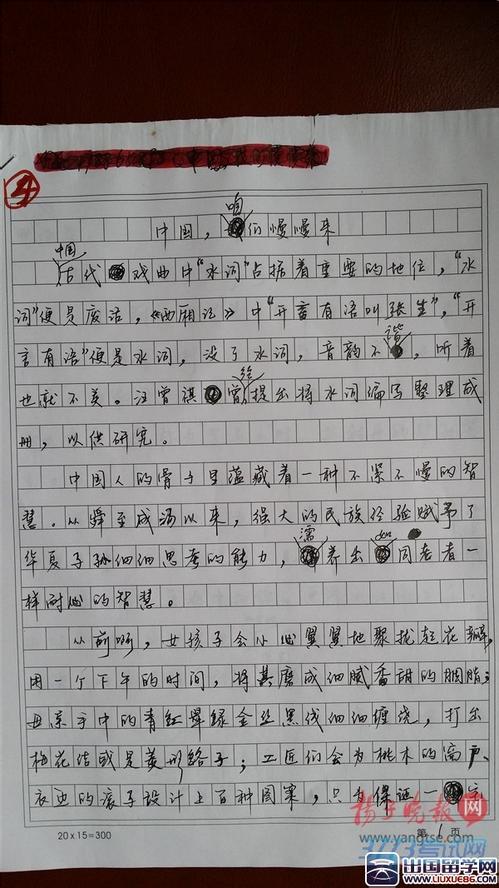 4
中国，咱们慢慢来
中国古代戏曲中“水词”占据着重要的地位，“水
词”便是废话，《西厢记》中“开言有语叫张生”，“开
言有语”便是水词，没了水词，音韵不谐，听着
也就不美。汪曾祺曾经提出将水词编写整理成
册，以供研究。
中国人的骨子里蕴藏着一种不紧不慢的智
慧。从舜至成汤以来，强大的民族经验赋予了
华夏子孙细细思考的能力，濡养出如同老者一
样耐心的智慧。
从前啊，女孩子会小心翼翼地聚拢轻花瓣，
用一个下午的时间，将其磨成细腻香甜的胭脂；
母亲手中的青红翠绿金丝黑线细细缠绕，打出
梅花结或是菱形络子；工匠们会为桃木的窗户、
衣边的滚子设计上百种图案，只为保证一
20×15=300
第1页
扬子晚报网
www.yangtse.com
3773考试网
出国留学网
www.liuxue86.com